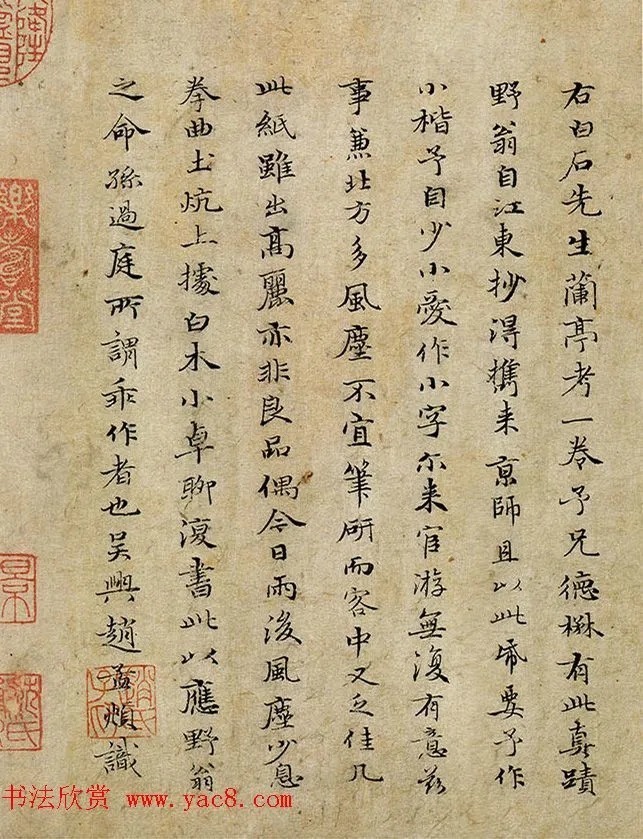 右白石先生蘭亭考一卷予兄德楙有此真蹟
野翁自江東抄得攜来京師且以此帋要予作
小楷予自少小愛作小字尔来宦游無復有意兹
事兼北方多風塵不宜筆研而客中又乏佳几
此紙雖出高麗亦非良品偶今日雨後風塵少息
拳曲土炕上據白木小卓聊復書此以應野翁
之命孫過庭所謂乖作者也吴興趙孟頫識
趙氏子昂
书法欣赏 www.yac8.com